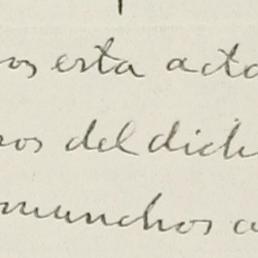 os esta acta
ros del dich
munchos a